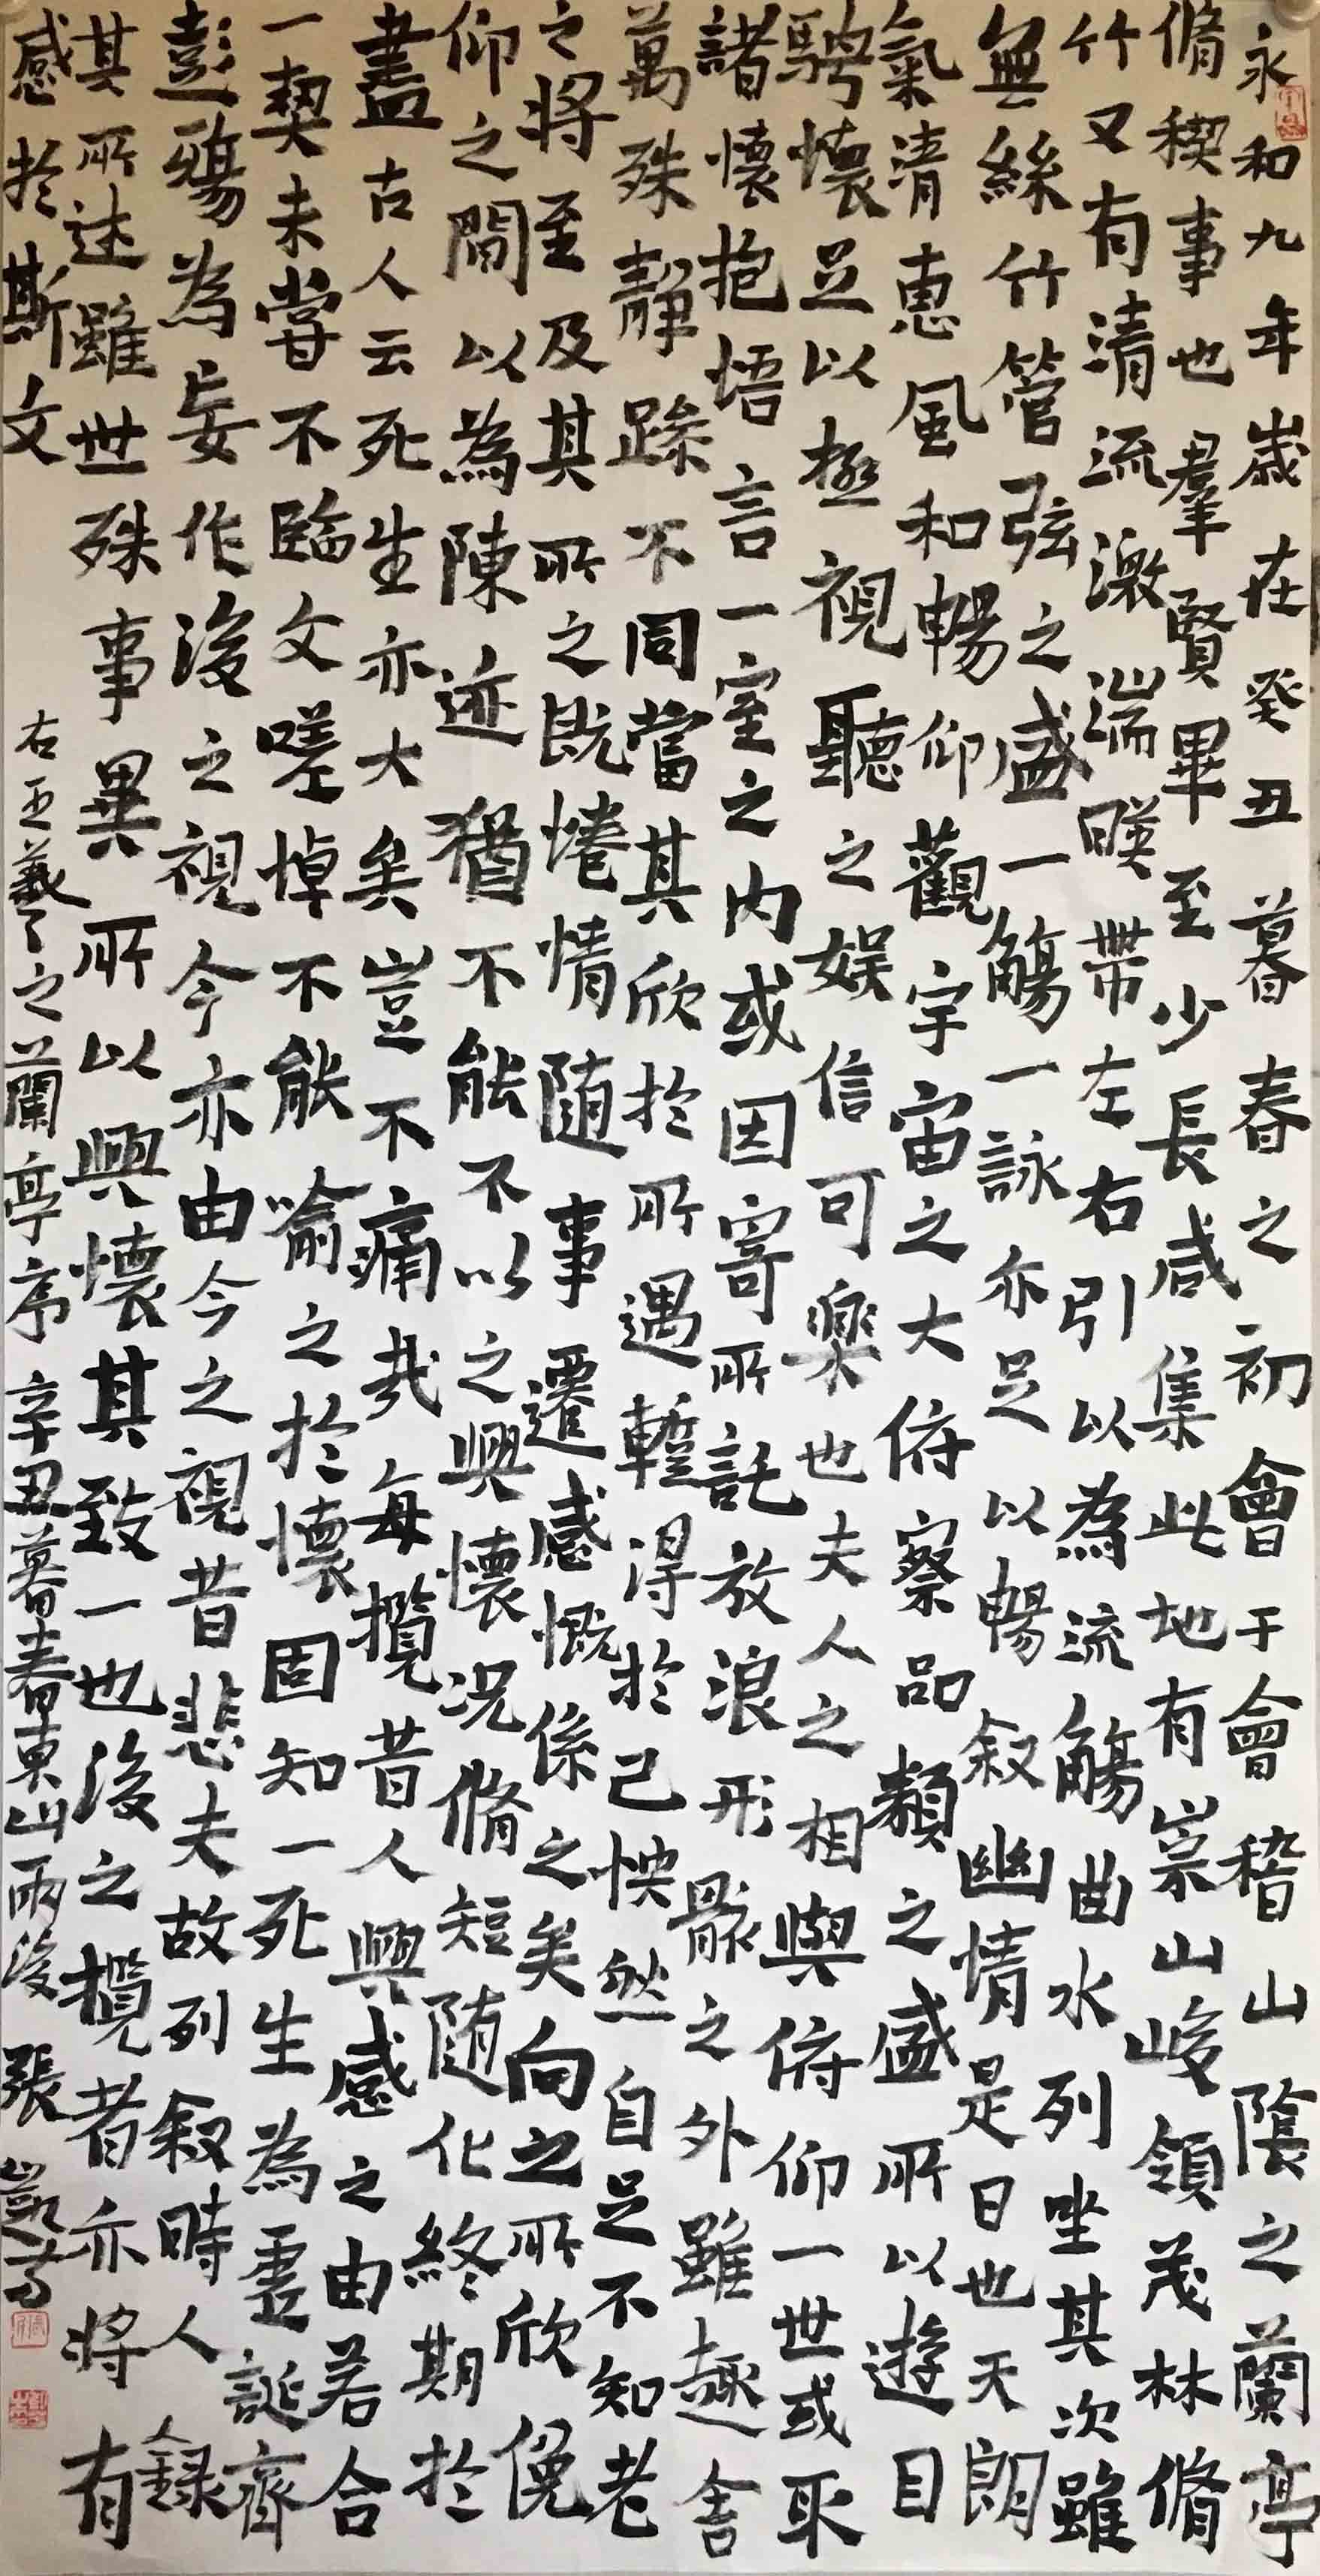 永和九年歲在癸丑暮春之初會于會稽山陰之蘭亭
脩稧事也羣賢畢至少長咸集此地有崇山峻領茂林脩
竹又有清流激湍暎帶左右引以為流觴曲水列坐其次雖
無絲竹管弦之盛一觴一詠亦足以暢叙幽情是日也天朗
氣清惠風和暢仰觀宇宙之大俯察品類之盛所以遊目
騁懷足以極視聽之娱信可樂也夫人之相與俯仰一世或取
諸懷抱悟言一室之內或因寄所託放浪形骸之外雖趣舍
萬殊靜躁不同當其欣於所遇暫得於己怏然自足不知老
之將至及其所之既惓情随事遷感慨係之矣向之所欣俛
仰之間以為陳迹猶不能不以之興懷況脩短随化終期於
盡古人云死生亦大矣豈不痛哉每攬昔人興感之由若合
一契未嘗不臨文嗟悼不能喻之於懷固知一死生為虛誕齊
彭殤為妄作後之視今亦由今之視昔悲夫故列叙時人錄
其所述雖世殊事異所以興懷其致一也後之攬者亦將有
感於斯文
右王羲之蘭亭序辛丑暮春東山雨後張凱書